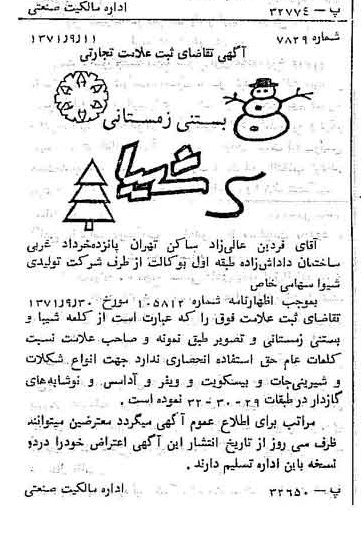 پ — ۳۲۷۷٤ اداره مالکیت صنعتی
شماره ۷۸۲۹ ۱۳۷۱/۹/۱۱
آگهی تقاضای ثبت علامت تجارتی
بستنی زمستانی
شیبا
آقای فردین عالی‌زاد ساکن تهران پانزده‌خرداد غربی
ساختمان داداش‌زاده طبقه اول بوکالت از طرف شرکت تولیدی
شیوا سهامی خاص
بموجب اظهارنامه شماره ۱۰۵۸۱۲ مورخ ۱۳۷۱/۹/۳۰
تقاضای ثبت علامت فوق را که عبارت است از کلمه شیبا و
بستنی زمستانی و تصویر طبق نمونه و صاحب علامت نسبت
کلمات عام حق استفاده انحصاری ندارد جهت انواع شکلات
و شیرینی‌جات و بیسکویت و ویفر و آدامس و نوشابه‌های
گازدار در طبقات ۲۹ — ۳۰ — ۳۲ نموده است .
مراتب برای اطلاع عموم آگهی میگردد معترضین میتوانند
ظرف سی روز از تاریخ انتشار این آگهی اعتراض خودرا دردو
نسخه باین اداره تسلیم دارند .
پ — ۳۲٦۵۰ اداره مالکیت صنعتی